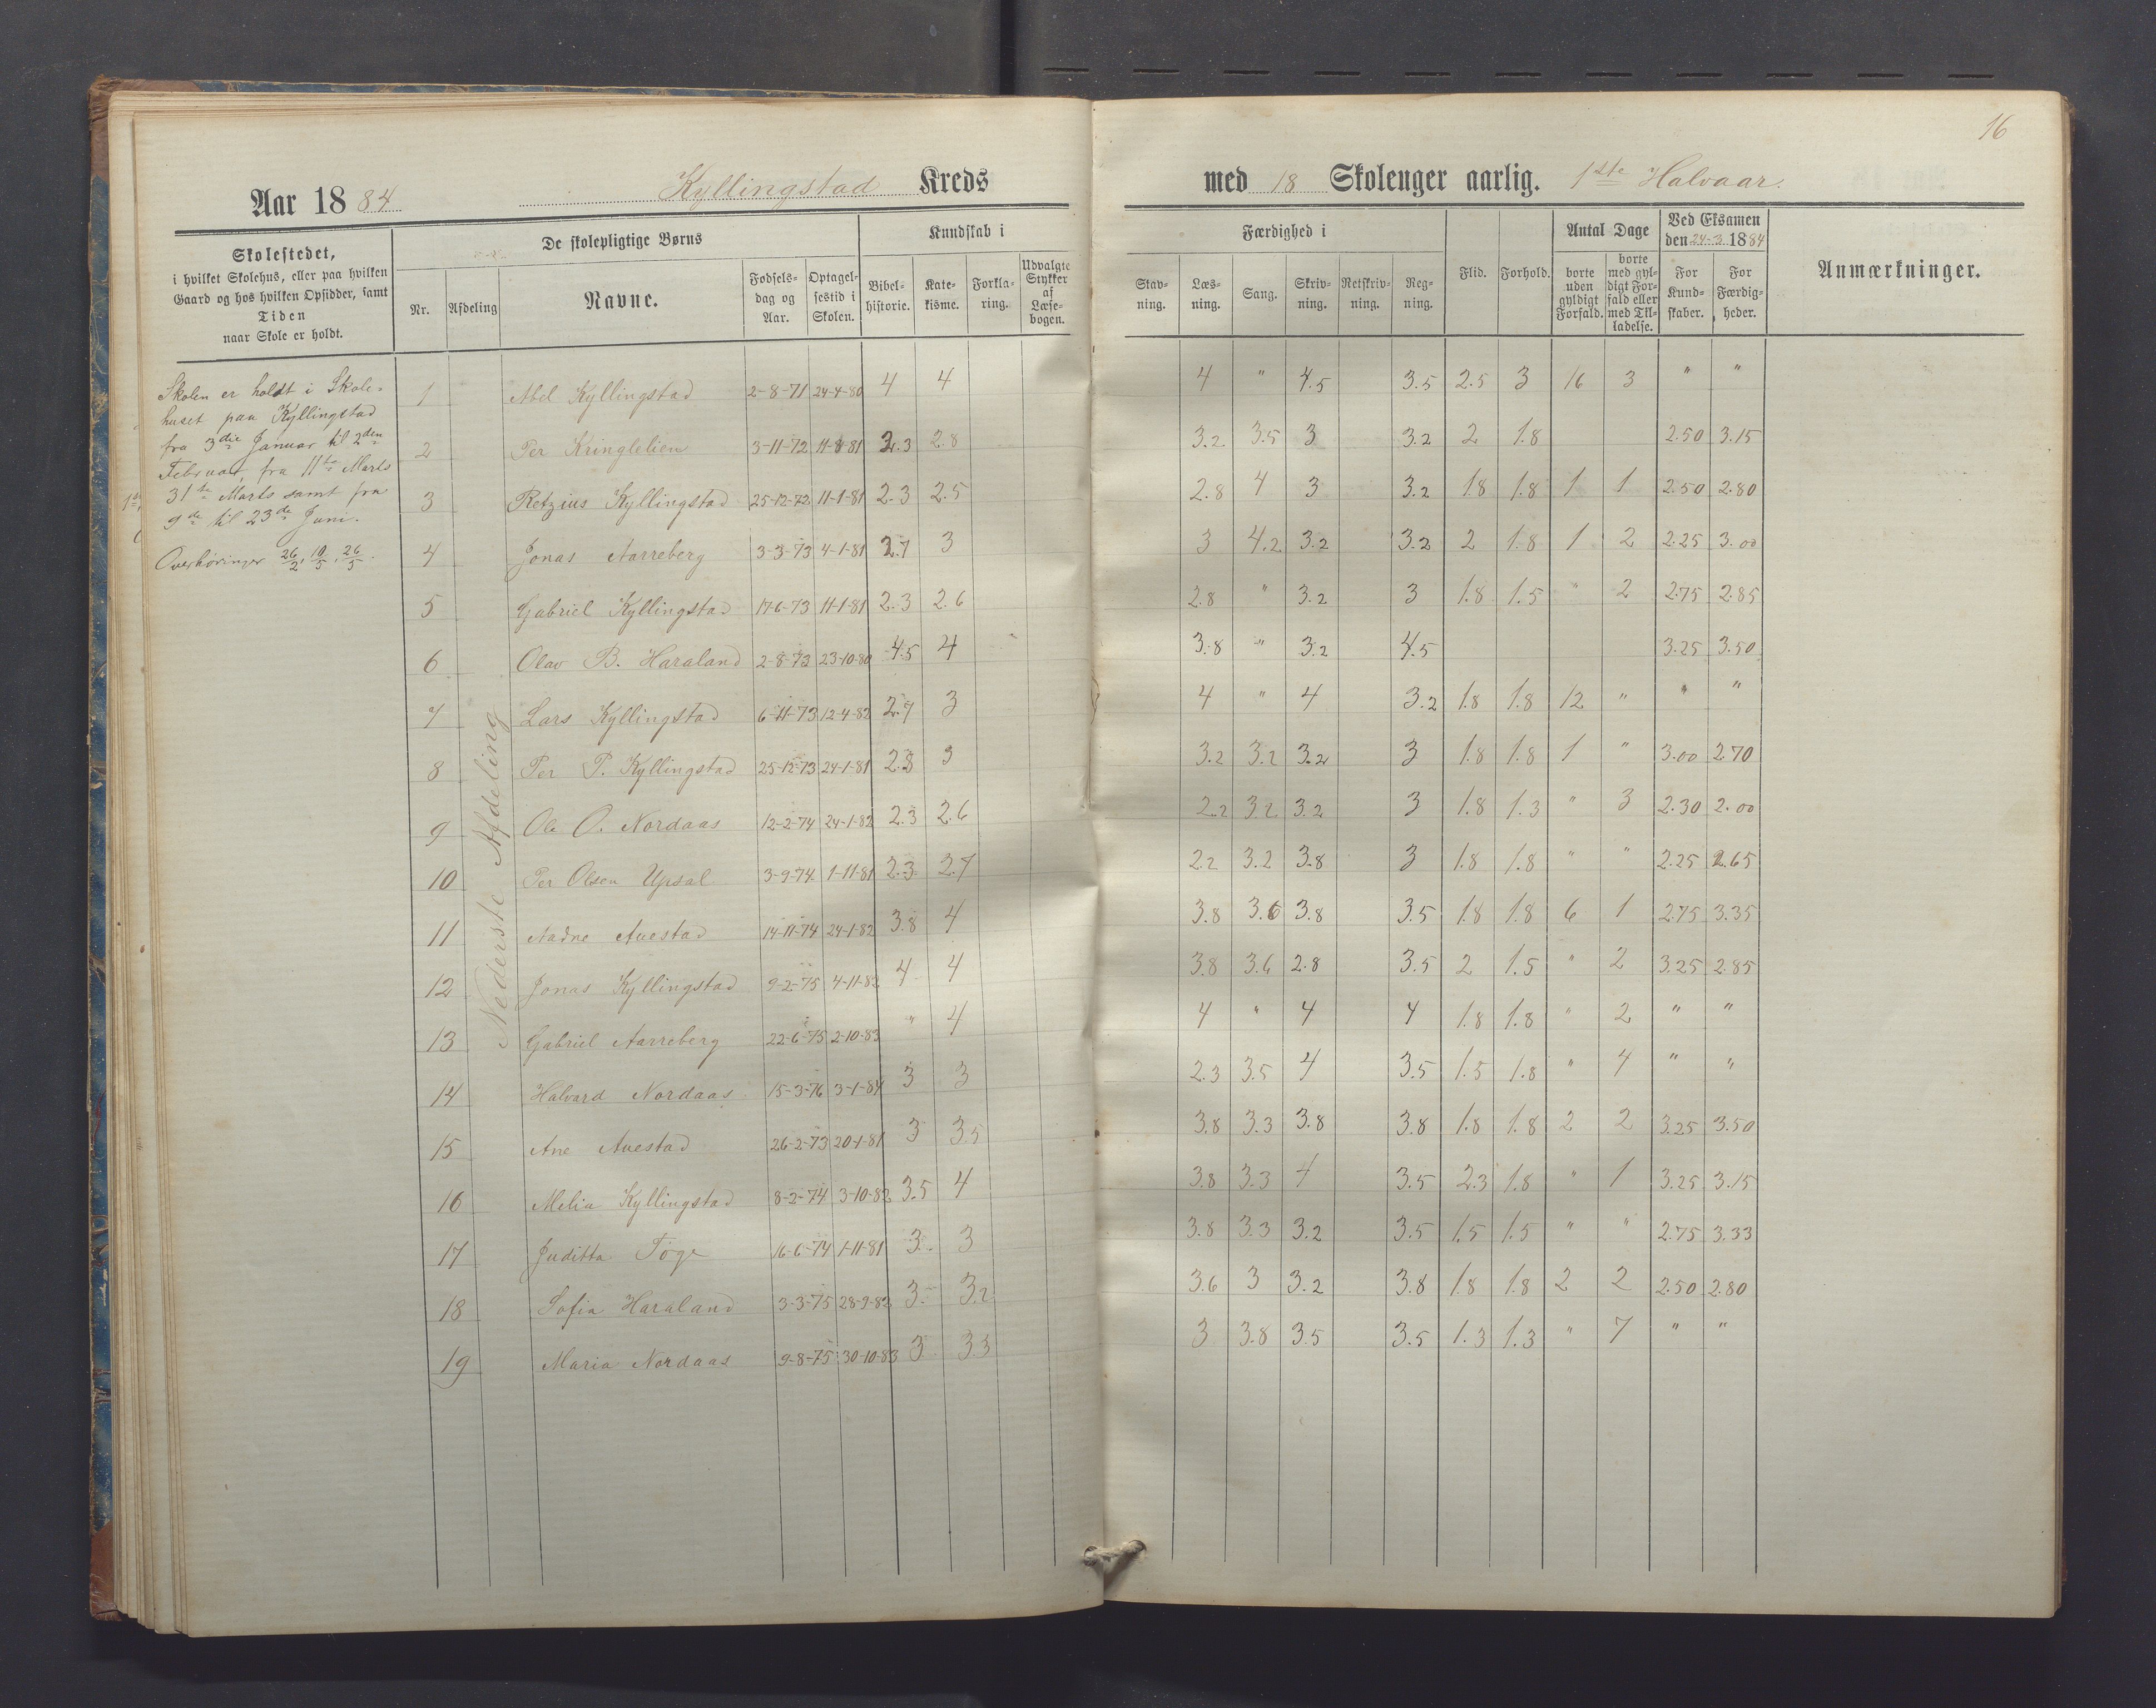 16
Aar 1884 Kyllingstad Kreds med 18 Skoleuger aarlig. 1ste Halvaar.
Skolestedet,
i hvilket Skolehus, eller paa hvilken
Gaard og hos hvilken Opsidder, samt
Tiden
naar Skole er holdt.
De skolepligtige Børns
Nr. Afdeling Navne. Fødselsdag og Aar. Optagelsestid i Skolen.
Kundskab i
Bibelhistorie. Katekisme. Forklaring. Udvalgte Stykker af Læsebogen.
Færdighed i
Stavning. Læsning. Sang. Skrivning. Retskrivning. Regning.
Flid. Forhold.
Antal Dage
borte uden gyldigt Forfald. borte med gyldigt Forfald eller med Tilladelse.
Ved Eksamen den 24-3 1884
For Kundskaber. For Færdigheder.
Anmærkninger.
Skolen er holdt i Skole-
huset paa Kyllingstad
fra 3die Januar til 2den
Februar, fra 11te Marts
31te Marts samt fra
9de til 23de Juni.
Overhøringer 26/2, 10/5, 26/5.
Nederste Afdeling
1 Abel Kyllingstad 2-8-71 24-4-80 4 4 4 " 4.5 3.5 2.5 3 16 3 " "
2 Per Kringlelien 3-11-72 11-8-81 2.3 2.8 3.2 3.5 3 3.2 2 1.8 2.50 3.15
3 Retzius Kyllingstad 25-12-72 11-1-81 2.3 2.5 2.8 4 3 3.2 1.8 1.8 1 1 2.50 2.80
4 Jonas Aarreberg 3-3-73 4-1-81 2.7 3 3 4.2 3.2 3.2 2 1.8 1 2 2.25 3.00
5 Gabriel Kyllingstad 17-6-73 11-1-81 2.3 2.6 2.8 " 3.2 3 1.8 1.5 " 2 2.75 2.85
6 Olav B. Haraland 2-8-73 23-10-80 4.5 4 3.8 " 3.2 4.5 3.25 3.50
7 Lars Kyllingstad 6-11-73 12-4-82 2.7 3 4 " 4 3.2 1.8 1.8 12 " " "
8 Per P. Kyllingstad 25-12-73 24-1-81 2.8 3 3.2 3.2 3.2 3 1.8 1.8 1 " 3.00 2.70
9 Ole O. Nordaas 12-2-74 24-1-82 2.3 2.6 2.2 3.2 3.2 3 1.8 1.3 " 3 2.30 2.00
10 Per Olsen Upsal 3-9-74 1-11-81 2.3 2.7 2.2 3.2 3.8 3 1.8 1.8 " " 2.25 2.65
11 Aadne Auestad 14-11-74 24-1-82 3.8 4 3.8 3.6 3.8 3.5 1.8 1.8 6 1 2.75 3.35
12 Jonas Kyllingstad 9-2-75 4-11-82 4 4 3.8 3.6 2.8 3.5 2 1.5 " 2 3.25 2.85
13 Gabriel Aarreberg 22-6-75 2-10-83 " 4 4 " 4 4 1.8 1.8 " 2 " "
14 Halvard Nordaas 15-3-76 3-1-84 3 3 2.3 3.5 4 3.5 1.5 1.8 " 4 " "
15 Ane Auestad 26-2-73 20-1-81 3 3.5 3.8 3.3 3.8 3.8 1.8 1.8 2 2 3.25 3.50
16 Melia Kyllingstad 8-2-74 3-10-82 3.5 4 3.8 3.3 4 3.5 2.3 1.8 " 1 3.25 3.15
17 Juditta Tøge 16-6-74 1-11-81 3 3 3.8 3.3 3.2 3.5 1.5 1.5 " " 2.75 3.33
18 Sofia Haraland 3-3-75 28-9-82 3 3.2 3.6 3 3.2 3.8 1.8 1.8 2 2 2.50 2.80
19 Maria Nordaas 9-8-75 30-10-83 3 3.3 3 3.8 3.5 3.5 1.3 1.3 " 7 " "